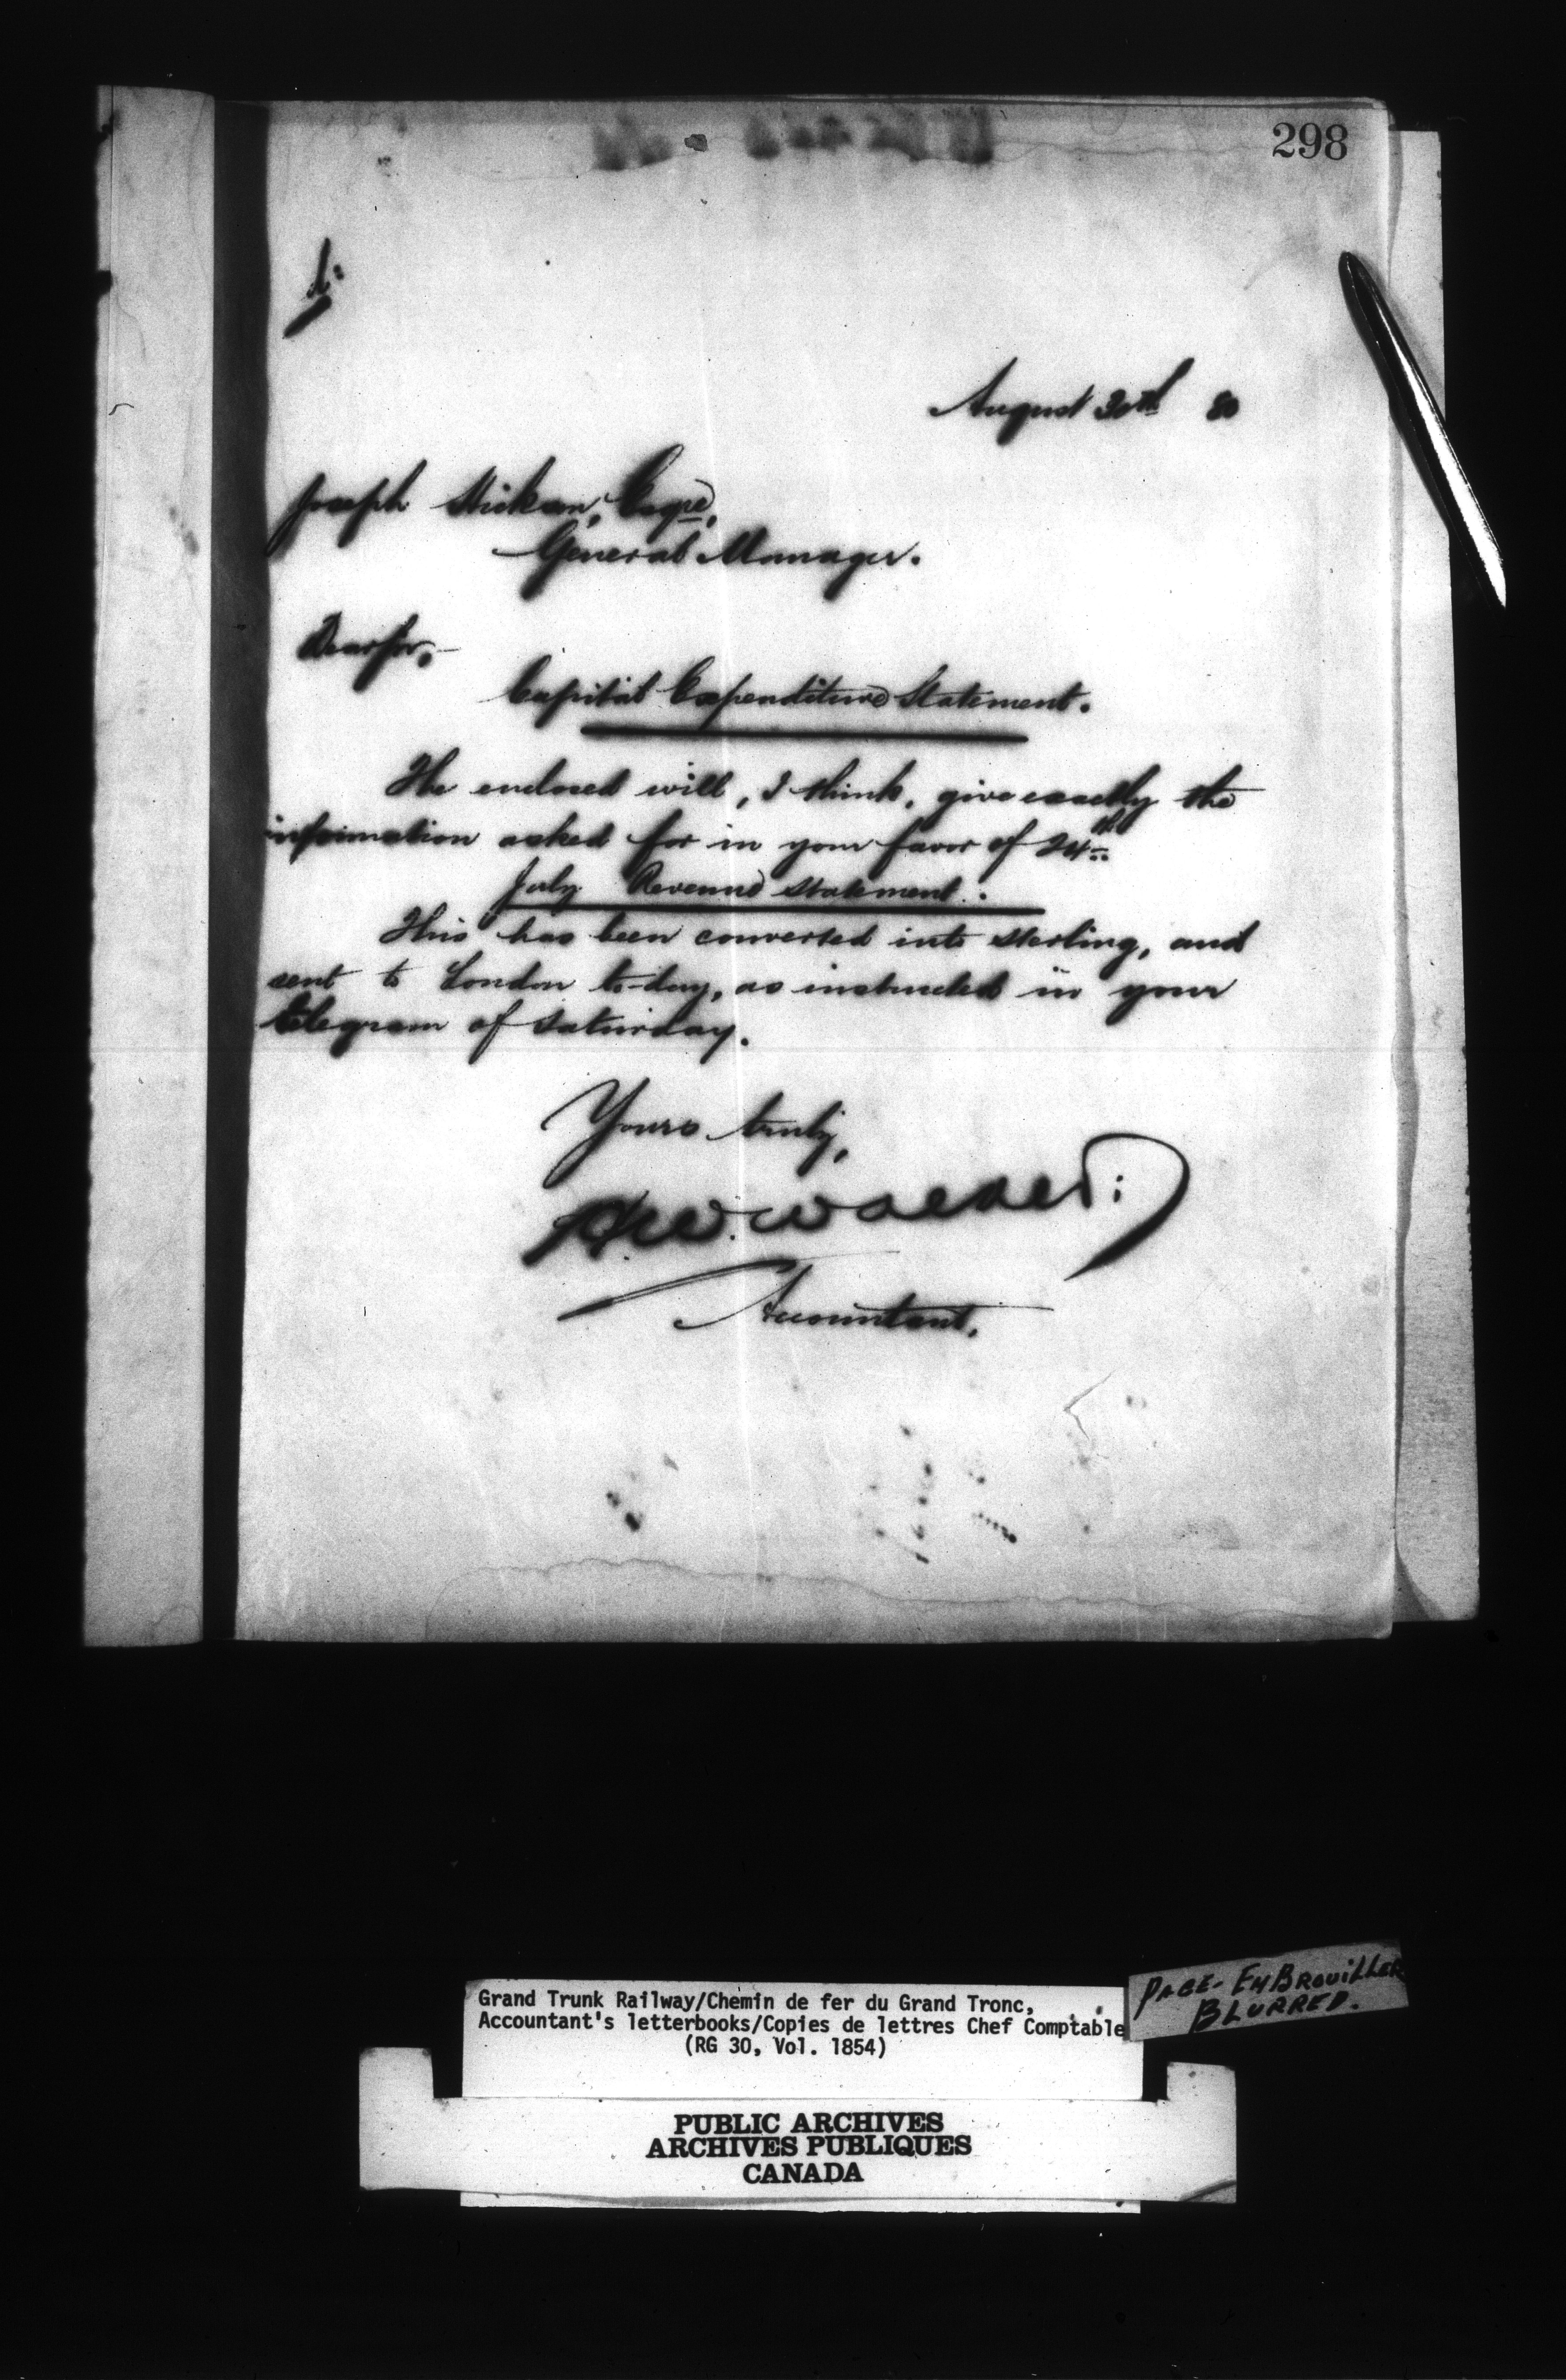 298
August 30th 80
Joseph Hickson, Esqre,
General Manager.
Dear Sir,-
Capital Expenditure Statement.
The enclosed will, I think, give exactly the
information asked for in your favor of 24th
July Revenue Statement.
This has been converted into sterling, and
sent to London to-day, as instructed in your
telegram of Saturday.
Yours truly,
Accountant.
Grand Trunk Railway/Chemin de fer du Grand Tronc,
Accountant's letterbooks/Copies de lettres Chef Comptable
(RG 30, Vol. 1854)
PAGE- EMBROUILLER
BLURRED.
PUBLIC ARCHIVES
ARCHIVES PUBLIQUES
CANADA